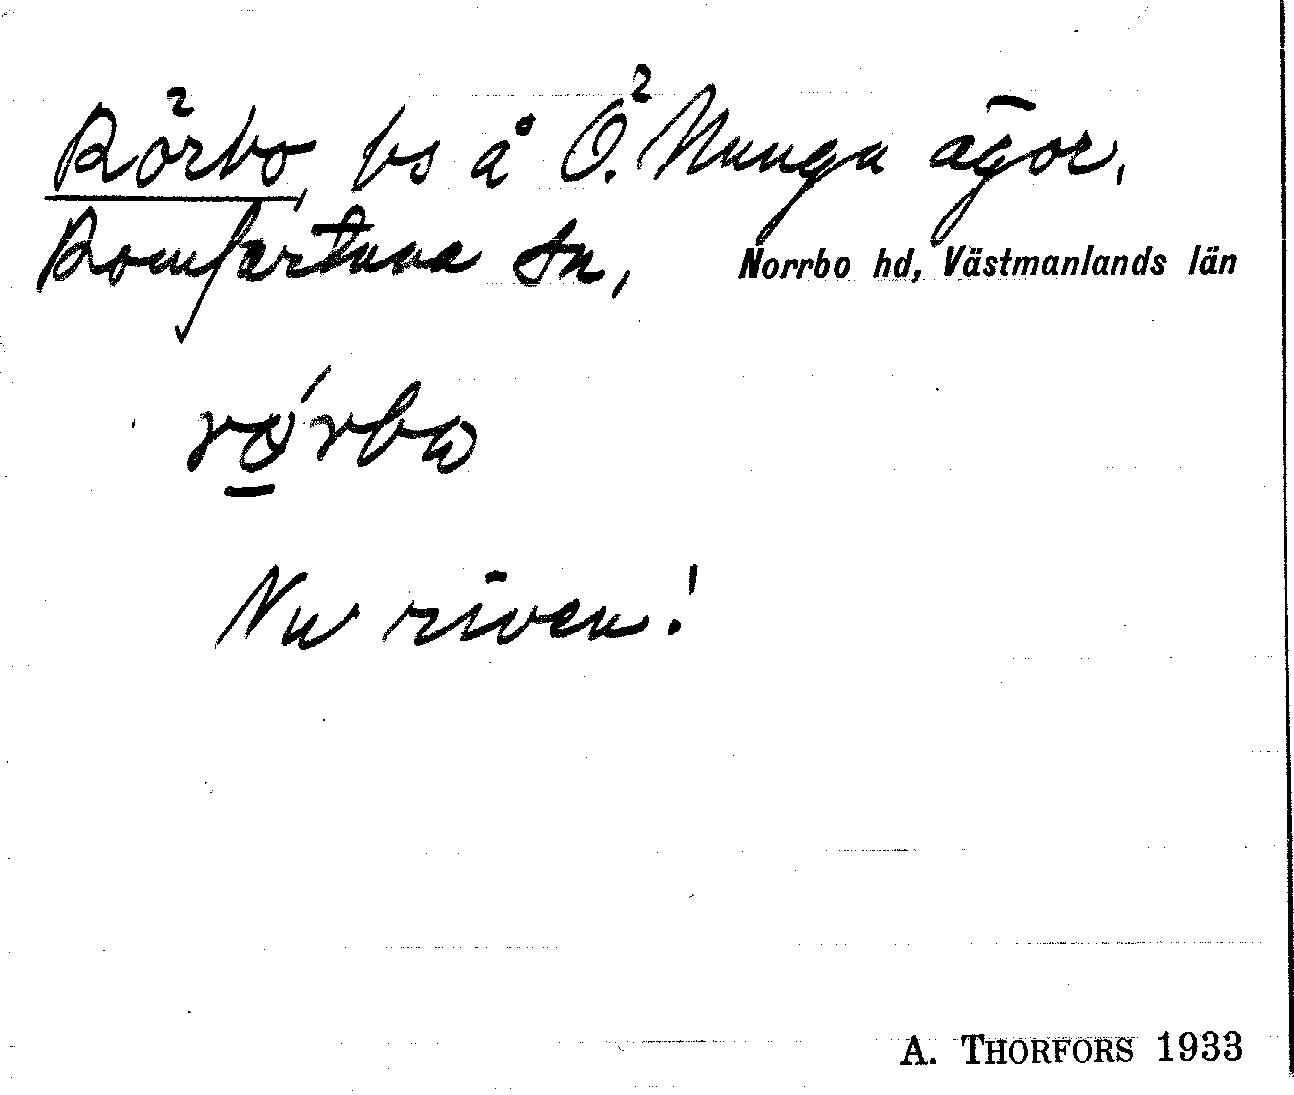 Rörbo, bs å Ö. Nunga ägor,
Romfartuna sn, Norrbo hd, Västmanlands län
rö́rbω
Nu riven!
A. THORFORS 1933